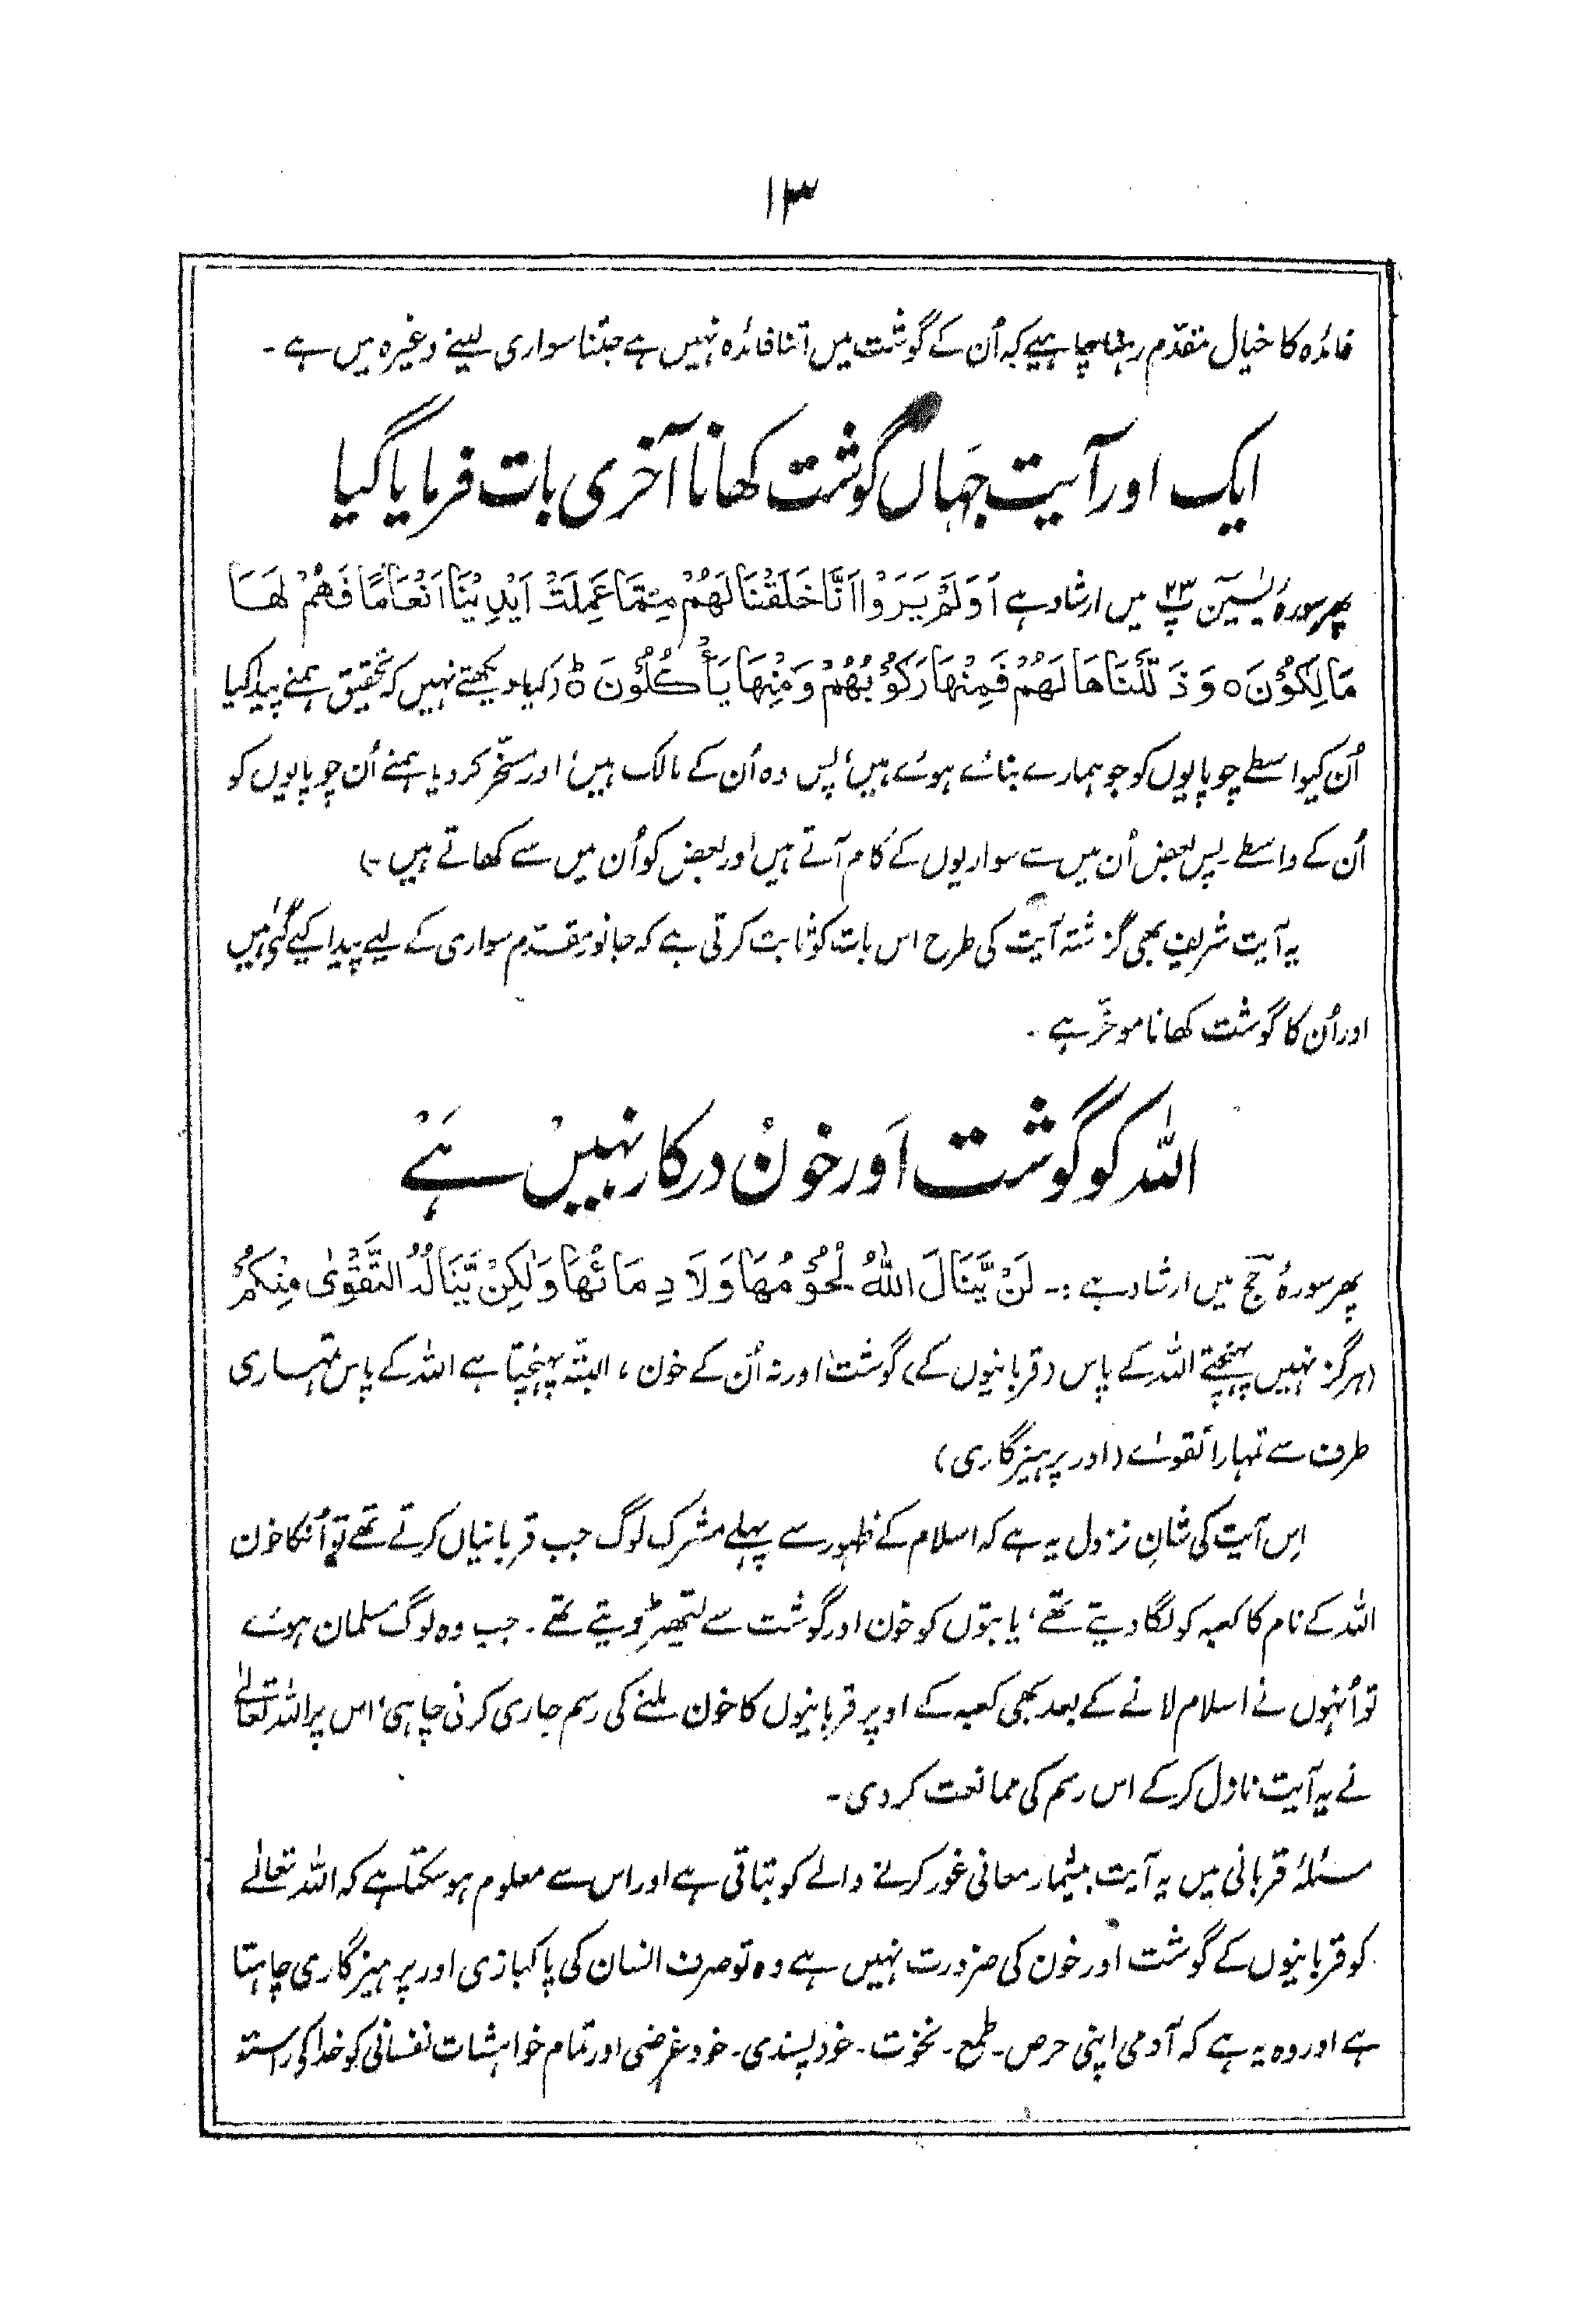 ۱۳
فائدہ کا خیال مقدّم رہنا چاہیے کہ اُن کے گوشت میں اتنا فائدہ نہیں ہے جتنا سواری لینے وغیرہ میں ہے ۔
ایک اور آیت جہاں گوشت کھانا آخری بات فرمایا گیا
پھر سورۂ یٰسین پ۲۳ میں ارشاد ہے اَوَلَمْ يَرَوْا اَنَّا خَلَقْنَا لَهُمْ مِمَّا عَمِلَتْ اَيْدِيْنَا اَنْعَامًا فَهُمْ لَهَا
مَالِكُوْنَ ○ وَذَلَّلْنَاهَا لَهُمْ فَمِنْهَا رَكُوْبُهُمْ وَمِنْهَا يَأْكُلُوْنَ ○ (کیا دیکھتے نہیں کہ تحقیق ہمنے پیدا کیا
اُن کیواسطے چوپایوں کو جو ہمارے بنائے ہوئے ہیں، پس وہ اُن کے مالک ہیں، اور مسخّر کر دیا ہمنے اُن چوپایوں کو
اُن کے واسطے ۔ پس بعض اُن میں سے سواریوں کے کام آتے ہیں اور بعض کو اُن میں سے کھاتے ہیں ۔)
یہ آیت شریف بھی گزشتہ آیت کی طرح اس بات کو ثابت کرتی ہے کہ جانور مقدم سواری کے لیے پیدا کیے گئے ہیں
اور اُن کا گوشت کھانا موخّر ہے ۔
اللہ کو گوشت اَور خون درکار نہیں ہَے
پھر سورۂ حج میں ارشاد ہے :۔ لَنْ يَّنَالَ اللهُ لُحُوْمُهَا وَلَا دِمَائُهَا وَلٰكِنْ يَّنَالُهُ التَّقْوٰى مِنْكُمْ
(ہرگز نہیں پہنچتے اللہ کے پاس (قربانیوں کے) گوشت اور نہ اُن کے خون ، البتہ پہنچتا ہے اللہ کے پاس تمہاری
طرف سے تمہارا تقوےٰ (اور پرہیزگاری)
اِس آیت کی شانِ نزول یہ ہے کہ اسلام کے ظہور سے پہلے مشرک لوگ جب قربانیاں کرتے تھے تو اُنکا خون
اللہ کے نام کا کعبہ کو لگا دیتے تھے، یا بتوں کو خون اور گوشت سے لتھیڑ دیتے تھے ۔ جب وہ لوگ مسلمان ہوئے
تو اُنہوں نے اسلام لانے کے بعد بھی کعبہ کے اوپر قربانیوں کا خون ملنے کی رسم جاری کرنی چاہی، اس پر اللہ تعالےٰ
نے یہ آیت نازل کر کے اس رسم کی ممانعت کر دی ۔
مسئلۂ قربانی میں یہ آیت بیشمار معانی غور کرنے والے کو بتاتی ہے اور اس سے معلوم ہو سکتا ہے کہ اللہ تعالےٰ
کو قربانیوں کے گوشت اور خون کی ضرورت نہیں ہے وہ تو صرف انسان کی پاکبازی اور پرہیزگاری چاہتا
ہے اور وہ یہ ہے کہ آدمی اپنی حرص ۔ طمع ۔ نخوت ۔ خود پسندی ۔ خود غرضی اور تمام خواہشات نفسانی کو خدا کی راستہ